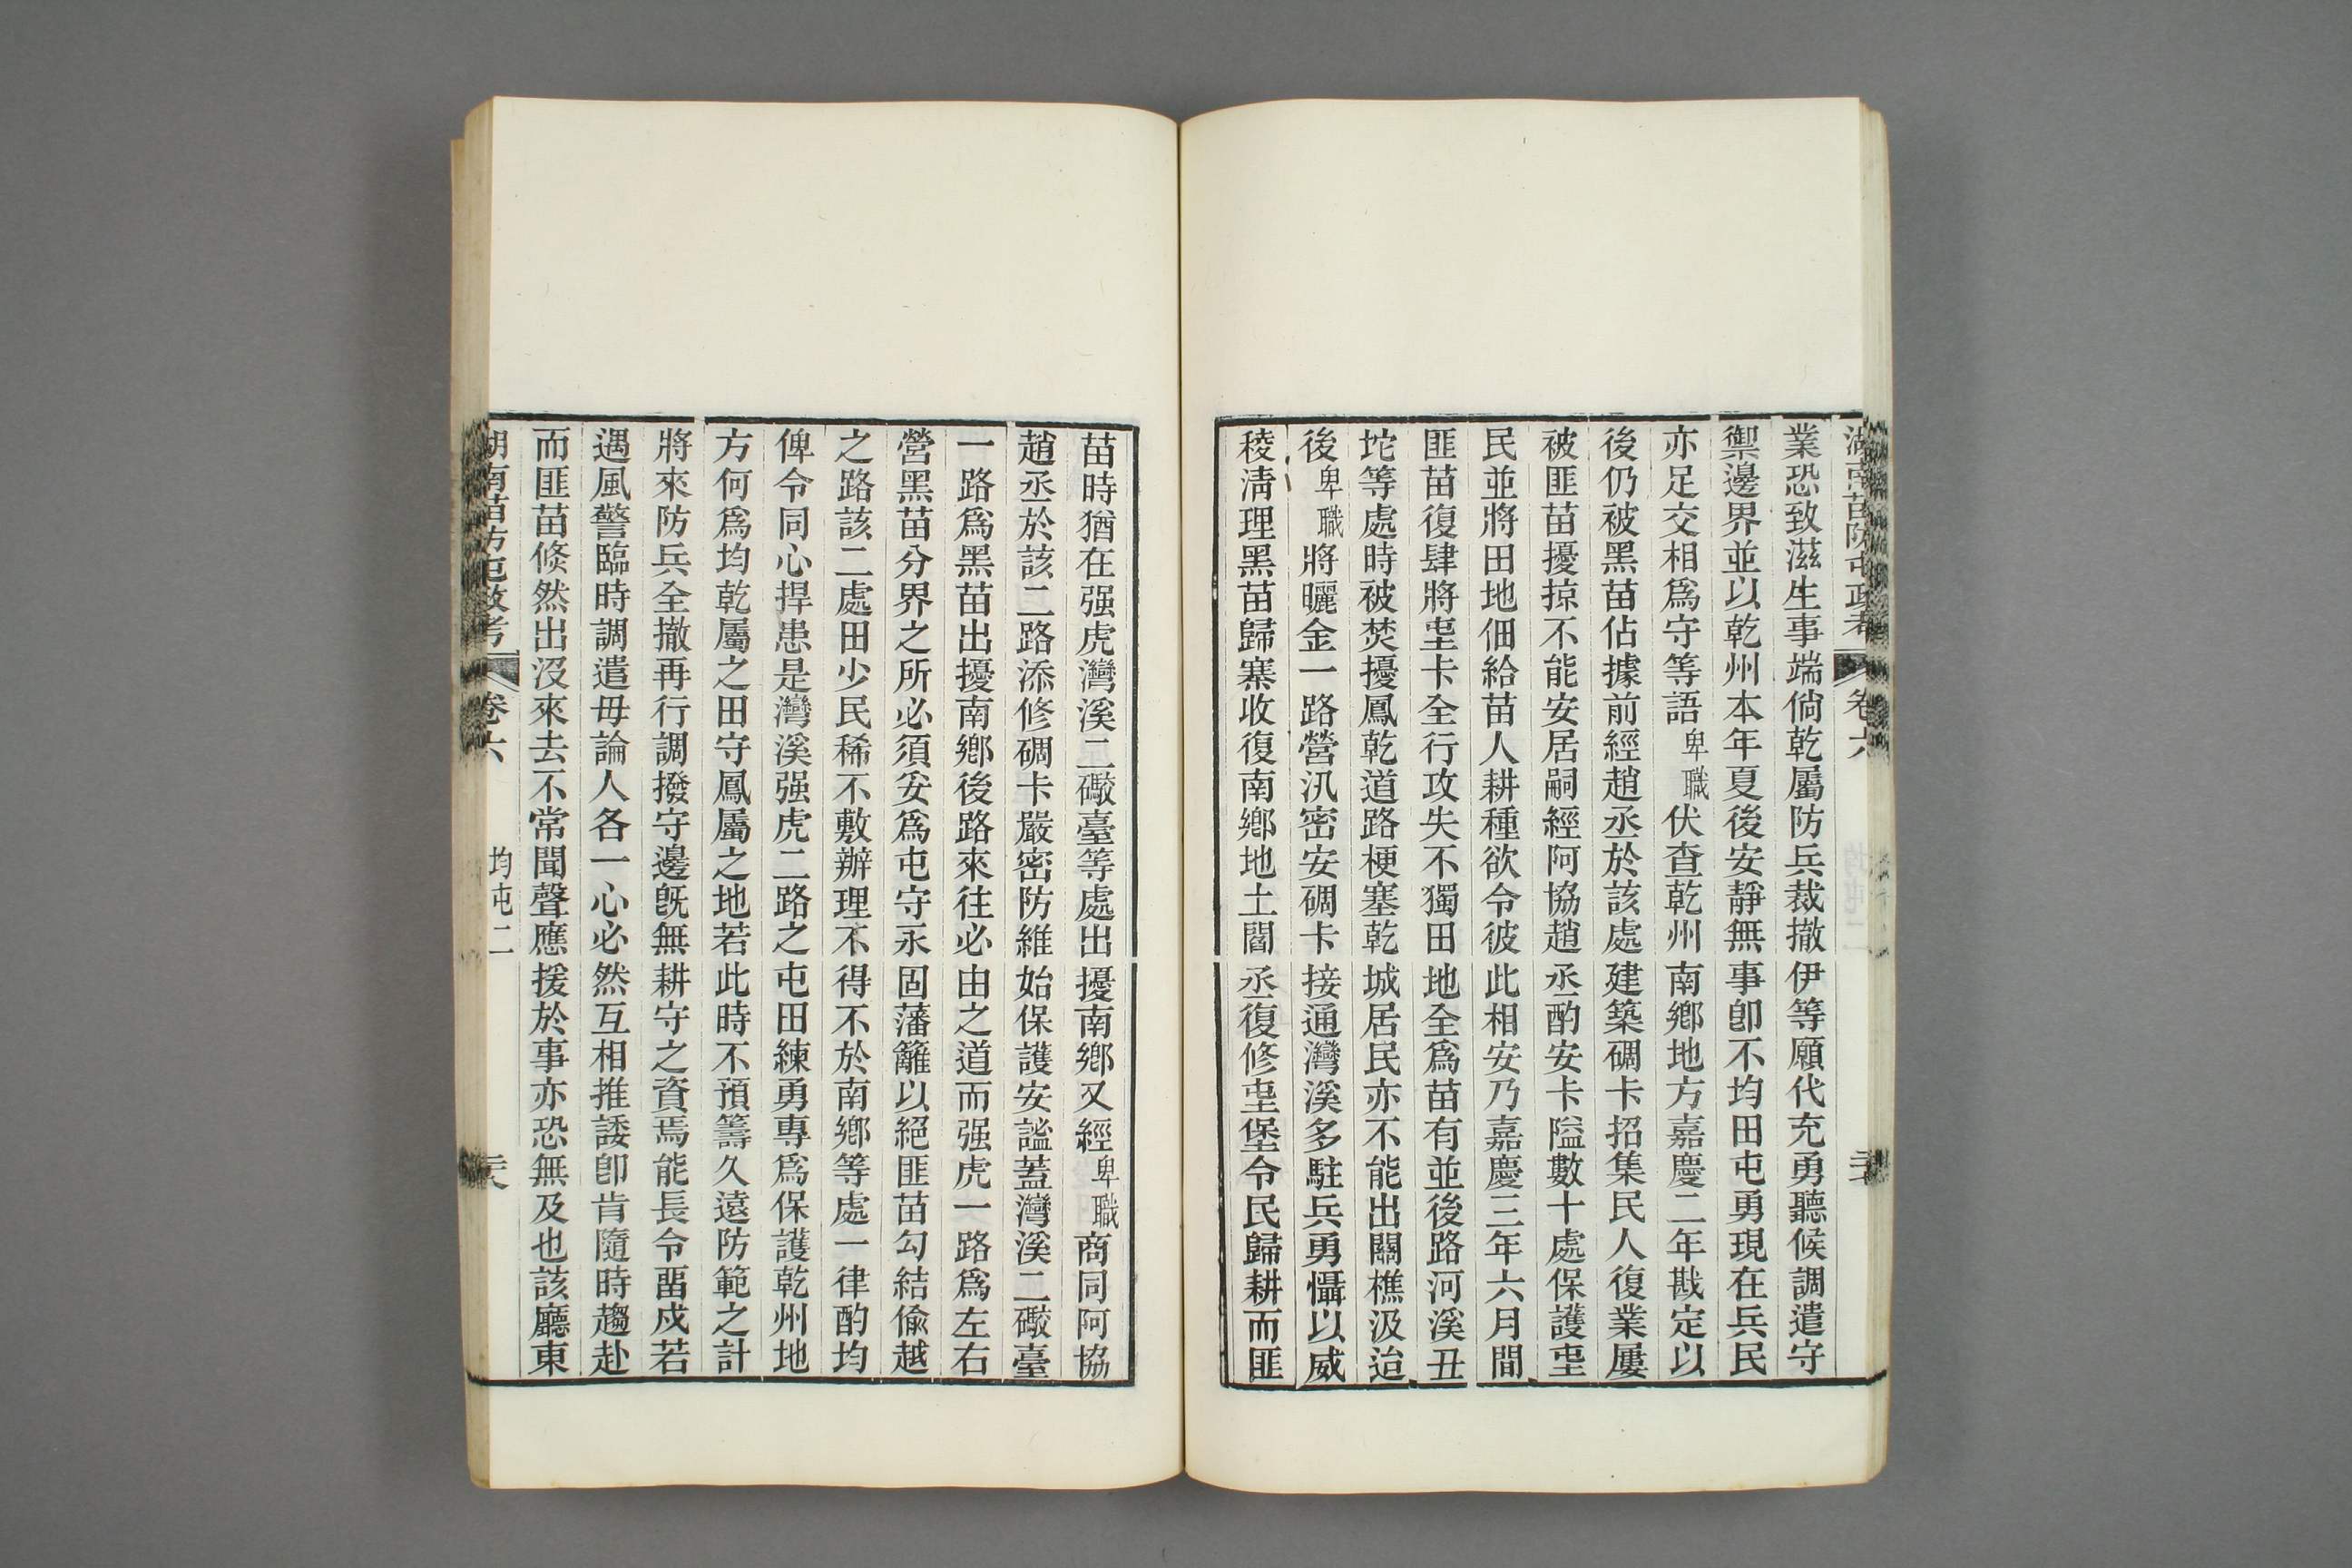 湖南苗防屯政考 卷六
業恐致滋生事端倘乾屬防兵裁撤伊等願代充勇聽候調遣守
禦邊界並以乾州本年夏後安靜無事卽不均田屯勇現在兵民
亦足交相爲守等語卑職伏查乾州南鄉地方嘉慶二年戡定以
後仍被黑苗佔據前經趙丞於該處建築碉卡招集民人復業屢
被匪苗擾掠不能安居嗣經阿協趙丞酌安卡隘數十處保護屯
民並將田地佃給苗人耕種欲令彼此相安乃嘉慶三年六月間
匪苗復肆將屯卡全行攻失不獨田地全爲苗有並後路河溪丑
坨等處時被焚擾鳳乾道路梗塞乾城居民亦不能出關樵汲迨
後卑職將曬金一路營汛密安碉卡接通灣溪多駐兵勇懾以威
稜淸理黑苗歸寨收復南鄉地土閻丞復修屯堡令民歸耕而匪
苗時猶在强虎灣溪二礮臺等處出擾南鄉又經卑職商同阿協
趙丞於該二路添修碉卡嚴密防維始保護安謐蓋灣溪二礮臺
一路爲黑苗出擾南鄉後路來往必由之道而强虎一路爲左右
營黑苗分界之所必須妥爲屯守永固藩籬以絕匪苗勾結偸越
之路該二處田少民稀不敷辦理不得不於南鄉等處一律酌均
俾令同心捍患是灣溪强虎二路之屯田練勇專爲保護乾州地
方何爲均乾屬之田守鳳屬之地若此時不預籌久遠防範之計
將來防兵全撤再行調撥守邊旣無耕守之資焉能長令畱戍若
遇風警臨時調遣毋論人各一心必然互相推諉卽肯隨時趨赴
而匪苗倏然出沒來去不常聞聲應援於事亦恐無及也該廳東
湖南苗防屯政考 卷六 均屯二 二六